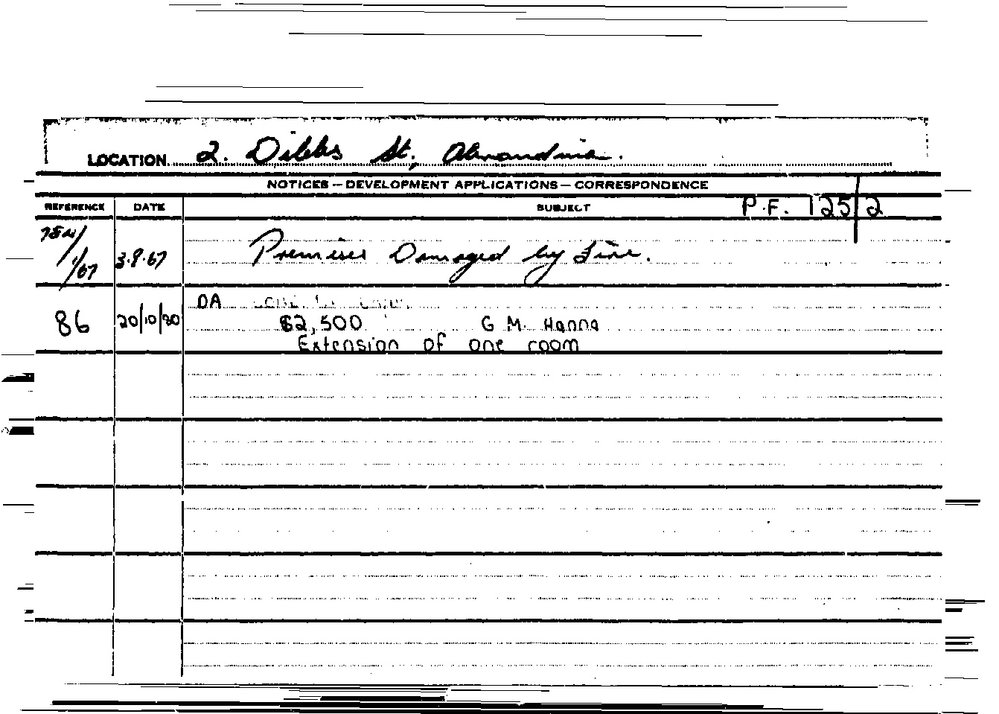 LOCATION 2. Dibbs St, Alexandria.
NOTICES — DEVELOPMENT APPLICATIONS — CORRESPONDENCE
REFERENCE DATE SUBJECT P.F. 125/2
3.9.67 Premises Damaged by Fire.
DA
86 20/10/80 $2,500 G M. Hanna
Extension of one room